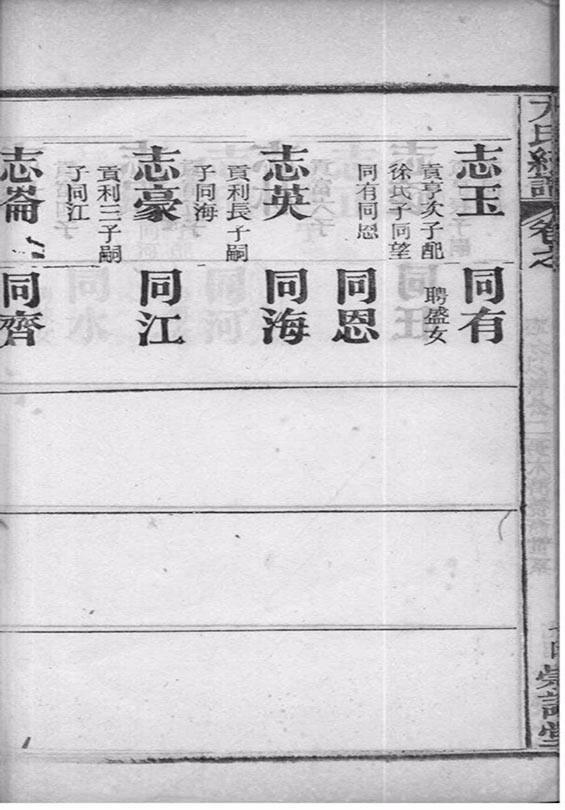 卷之
志玉
貢亨次子配
徐氏子同望
同有同恩
志英
貢利長子嗣
子同海
志豪
貢利三子嗣
子同江
志崙
同有
聘盛女
同恩
同海
同江
同齊